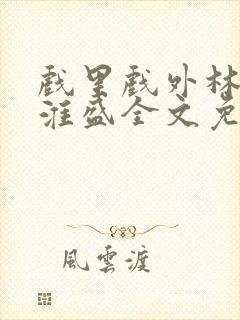 戲里戲外林
淮盛全文免
風雲渡